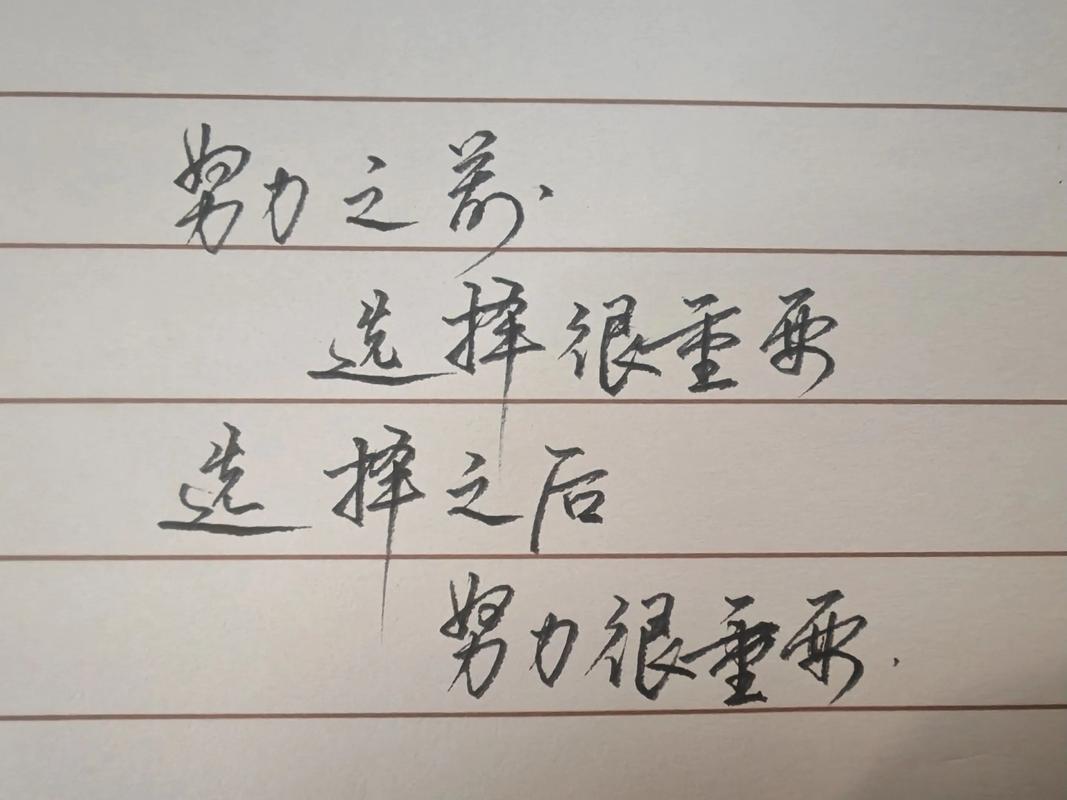 努力之前
选择很重要
选择之后
努力很重要.